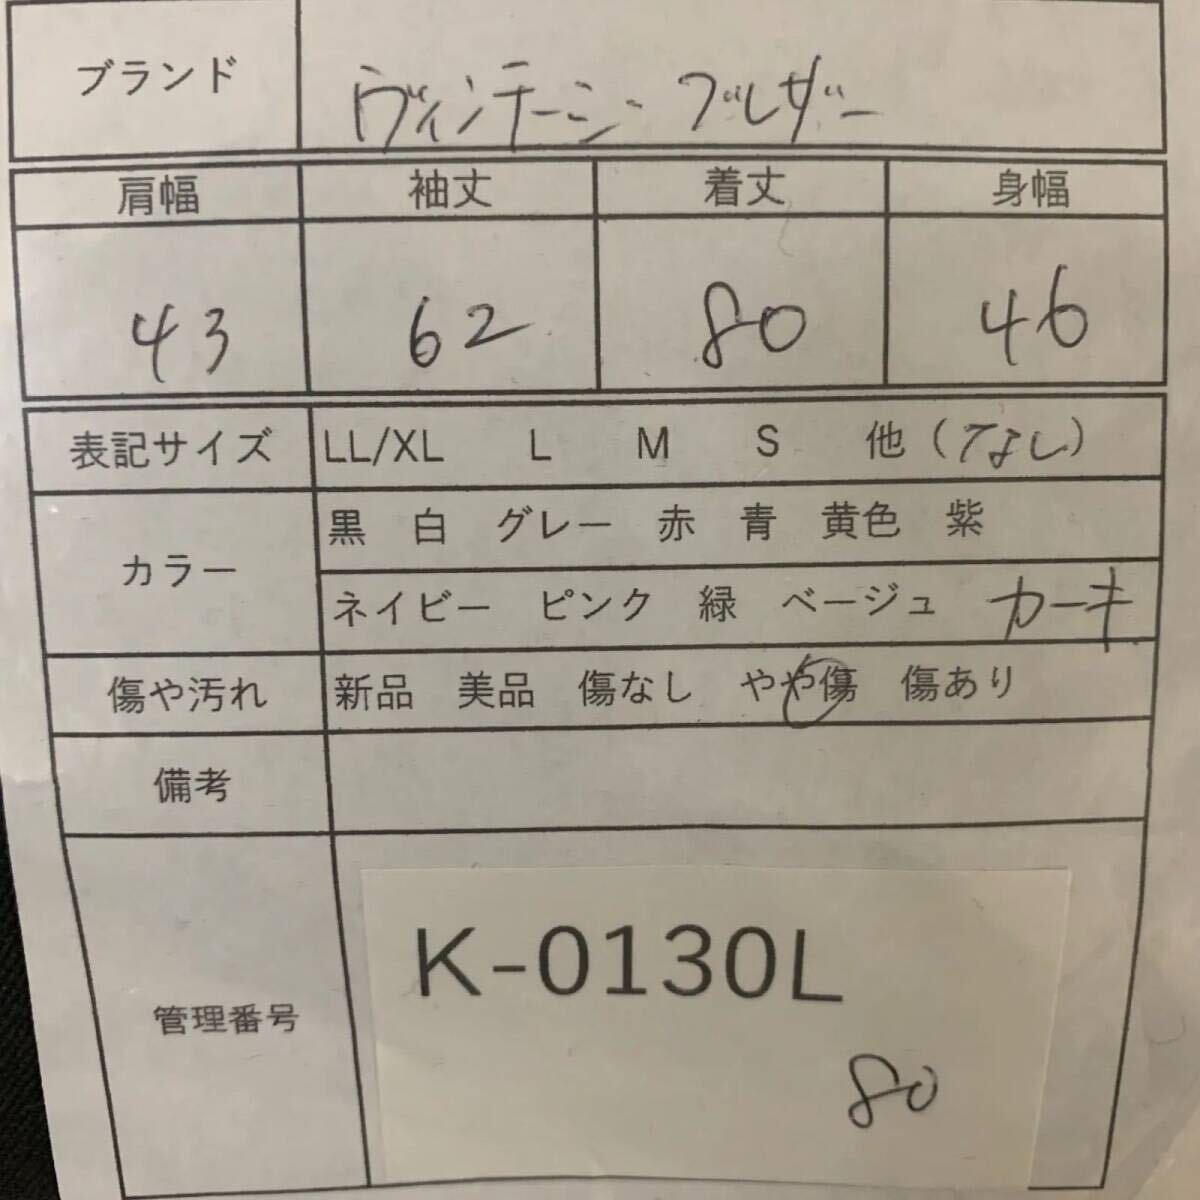 ブランド ヴィンテージ ブレザー
肩幅 袖丈 着丈 身幅
43 62 80 46
表記サイズ LL/XL L M S 他(なし)
カラー 黒 白 グレー 赤 青 黄色 紫
ネイビー ピンク 緑 ベージュ カーキ
傷や汚れ 新品 美品 傷なし やや傷 傷あり
備考
管理番号 K-0130L
80